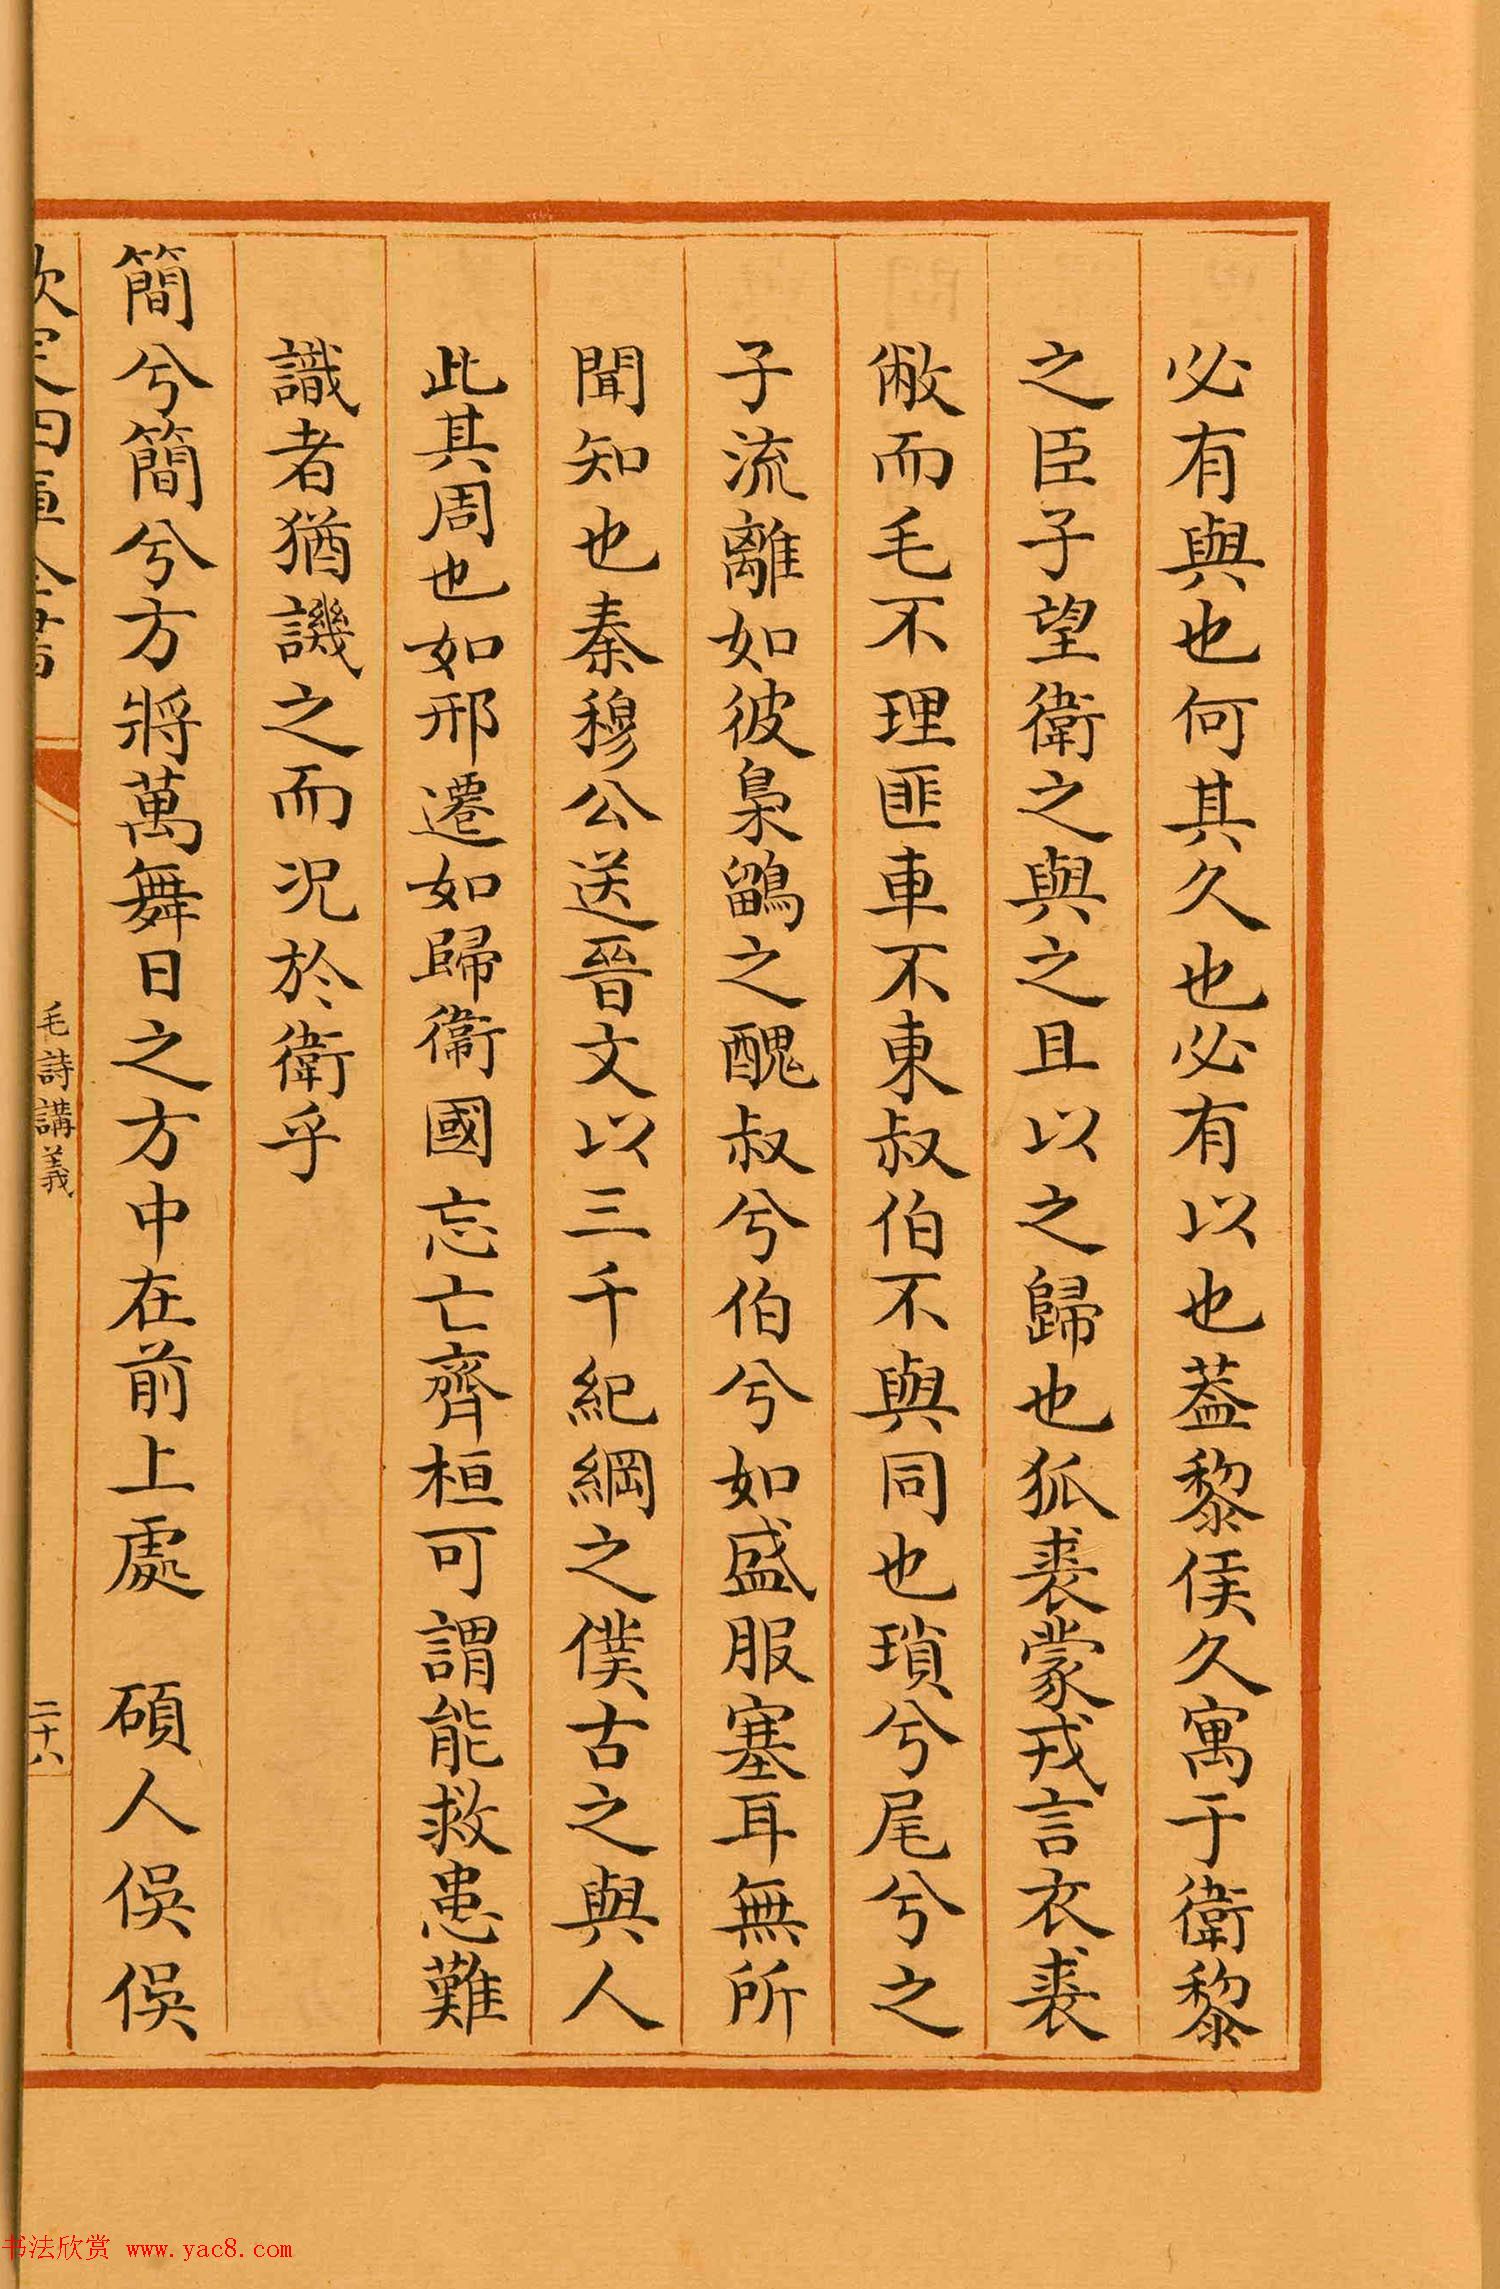 必有與也何其久也必有以也葢黎侯久寓于衛黎
之臣子望衛之與之且以之歸也狐裘蒙戎言衣裘
敝而毛不理匪車不東叔伯不與同也瑣兮尾兮之
子流離如彼梟鶹之醜叔兮伯兮如盛服塞耳無所
聞知也秦穆公送晉文以三千紀綱之僕古之與人
此其周也如邢遷如歸衞國忘亡齊桓可謂能救患難
識者猶譏之而况於衛乎
簡兮簡兮方將萬舞日之方中在前上處 碩人俁俁
欽定四庫全書
毛詩講義
二十八
书法欣赏 www.yac8.com